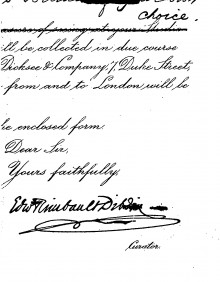 choice.
ll be collected in due course
Dicksee & Company, 7, Duke Street,
from and to London will be
he enclosed form.
Dear Sir,
Yours faithfully,
Edw Rimbault Dibdin
Curator.